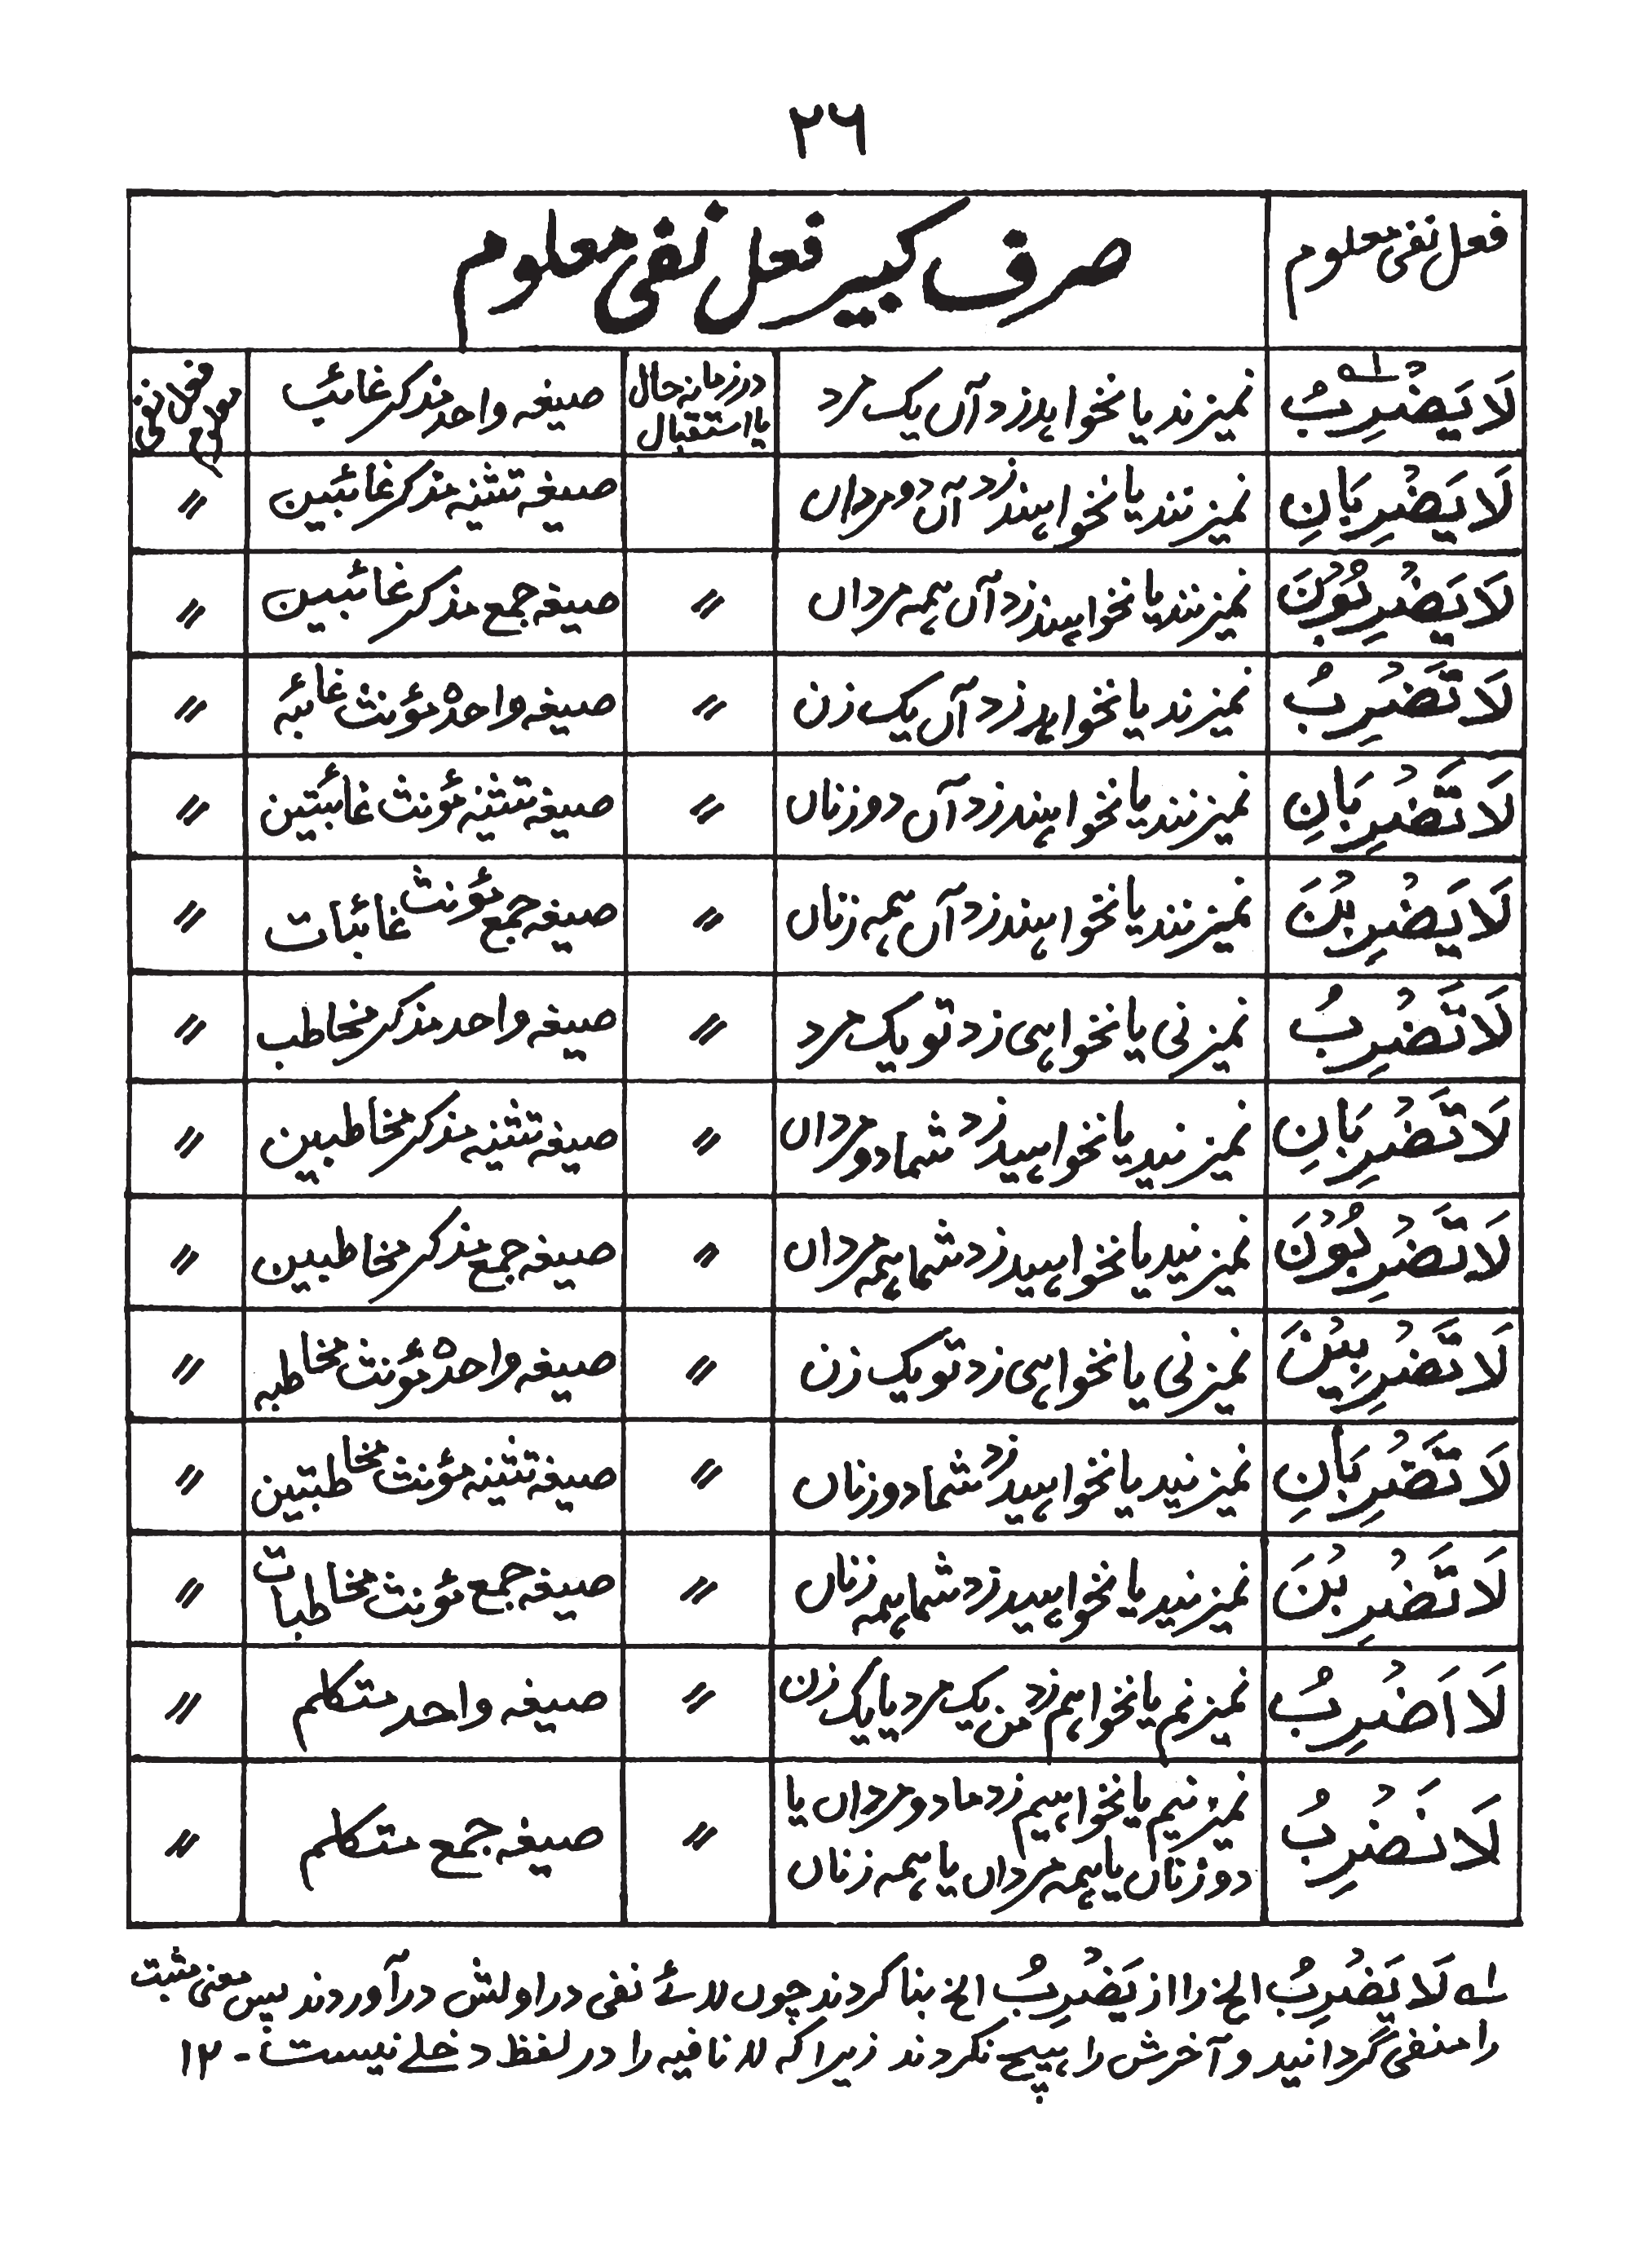 ٢٦
فعل نفی معلوم صرف کبیر فعل نفی معلوم
لَا یَضْرِبُ لہ نمیزند یا نخواہد زد آں یک مرد در زمانہ حال یا استقبال صیغہ واحد مذکر غائب فعل نفی معلوم
لَا یَضْرِبَانِ نمیزنند یا نخواہند زد آں دو مرداں صیغہ تثنیہ مذکر غائبین 〃
لَا یَضْرِبُوْنَ نمیزنند یا نخواہند زد آں ہمہ مرداں 〃 صیغہ جمع مذکر غائبین 〃
لَا تَضْرِبُ نمیزند یا نخواہد زد آں یک زن 〃 صیغہ واحدہ مؤنث غائبہ 〃
لَا تَضْرِبَانِ نمیزنند یا نخواہند زد آں دو زناں 〃 صیغہ تثنیہ مؤنث غائبتین 〃
لَا یَضْرِبْنَ نمیزنند یا نخواہند زد آں ہمہ زناں 〃 صیغہ جمع مؤنث غائبات 〃
لَا تَضْرِبُ نمیزنی یا نخواہی زد تو یک مرد 〃 صیغہ واحد مذکر مخاطب 〃
لَا تَضْرِبَانِ نمیزنید یا نخواہید زد شما دو مرداں 〃 صیغہ تثنیہ مذکر مخاطبین 〃
لَا تَضْرِبُوْنَ نمیزنید یا نخواہید زد شما ہمہ مرداں 〃 صیغہ جمع مذکر مخاطبین 〃
لَا تَضْرِبِیْنَ نمیزنی یا نخواہی زد تو یک زن 〃 صیغہ واحدہ مؤنث مخاطبہ 〃
لَا تَضْرِبَانِ نمیزنید یا نخواہید زد شما دو زناں 〃 صیغہ تثنیہ مؤنث مخاطبتین 〃
لَا تَضْرِبْنَ نمیزنید یا نخواہید زد شما ہمہ زناں 〃 صیغہ جمع مؤنث مخاطبات 〃
لَا اَضْرِبُ نمیزنم یا نخواہم زد من یک مرد یا یک زن 〃 صیغہ واحد متکلم 〃
لَا نَضْرِبُ نمیزنیم یا نخواہیم زد ما دو مرداں یا 〃 صیغہ جمع متکلم 〃
دو زناں یا ہمہ مرداں یا ہمہ زناں
لہ لَا یَضْرِبُ الخ را از یَضْرِبُ الخ بنا کردند چوں لائے نفی در اولش در آوردند پس معنی مثبت
را منفی گردانید و آخرش را ہیچ نکردند زیرا کہ لا نافیہ را در لفظ دخلے نیست ۔ ۱۲